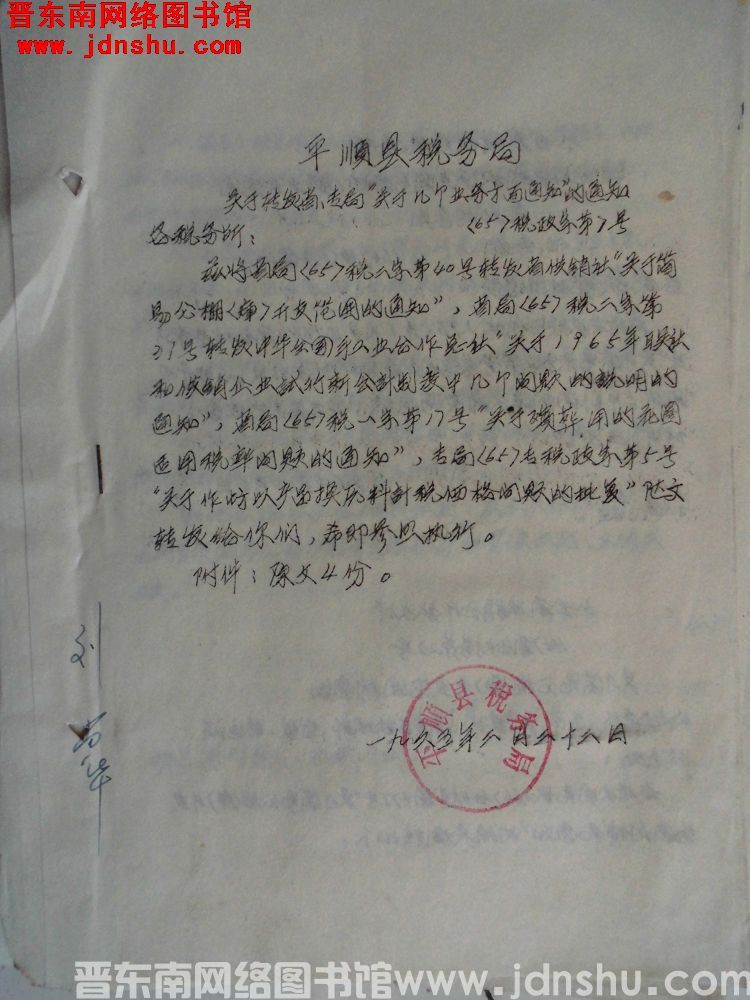 晋东南网络图书馆
www.jdnshu.com
平顺县税务局
关于转发省、专局“关于几个业务方面通知”的通知
〈65〉税政字第7号
各税务所：
兹将省局〈65〉税二字第40号转发省供销社“关于简
易公棚〈棒〉开支范围的通知”，省局〈65〉税二字第
37号转发中华全国手工业合作总社“关于1965年联社
和供销企业试行新会计制度中几个问题的说明的
通知”，省局〈65〉税一字第17号“关于殡葬用的花圈
适用税率问题的通知”，专局〈65〉专税政字第5号
“关于作坊以产品换原料计税价格问题的批复”随文
转发给你们，希即参照执行。
附件：原文4份。
平顺县税务局
一九六五年二月二十二日
晋东南网络图书馆www.jdnshu.com